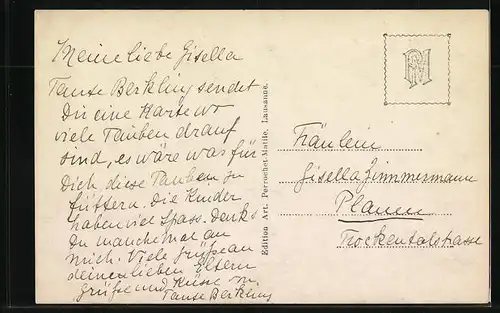 Meine liebe Gisella
Tante Berkling sendet
Dir eine Karte wo
viele Tauben drauf
sind, es wäre was für
Dich, diese Tauben zu
füttern. Die Kinder
haben viel Spass. Denk
Du manchmal an
mich. Viele Grüße an
deine lieben Eltern
Grüße und Küsse von
Tante Berkling
Edition Art. Perrochet-Matile, Lausanne.
PM
Fräulein
Gisella Zimmermann
Plauen
Trockentalstrasse